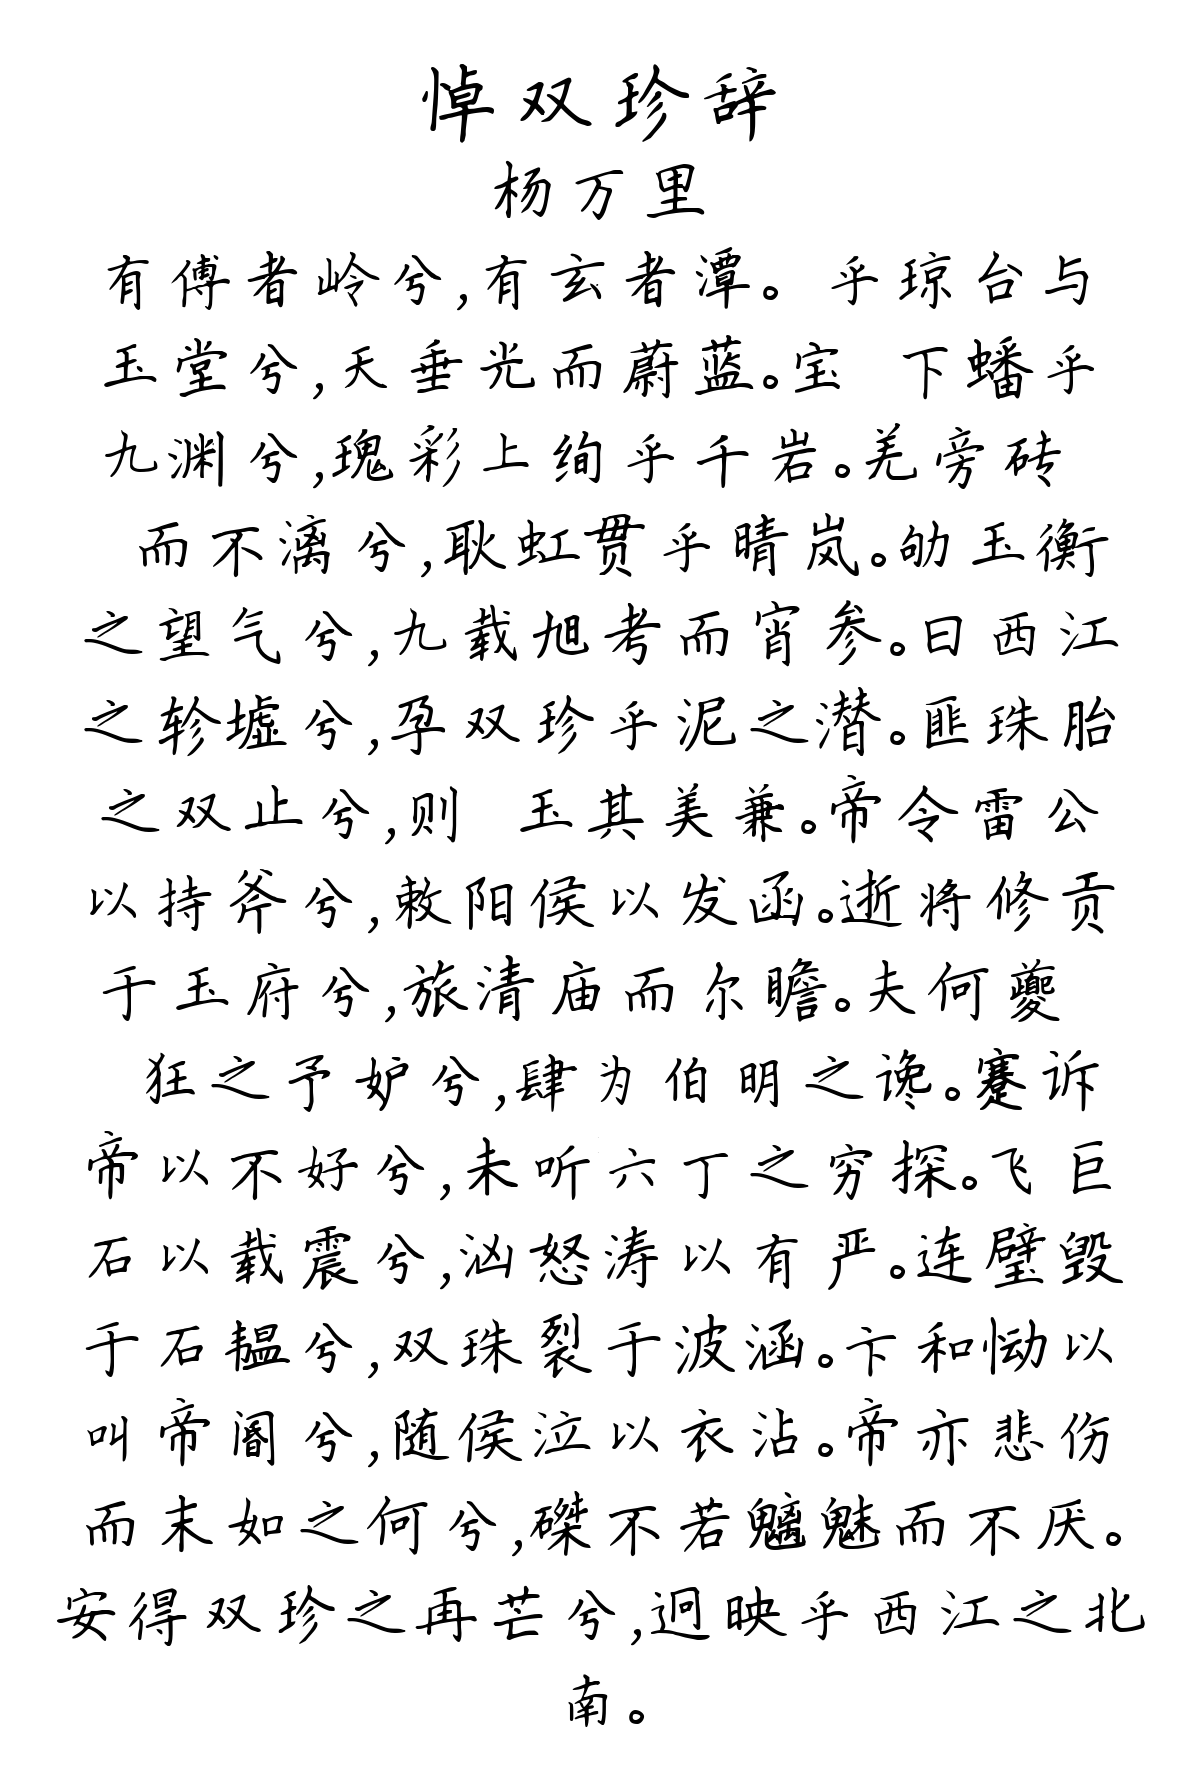 悼双珍辞
杨万里
有傅者岭兮,有玄者潭。 乎琼台与
玉堂兮,天垂光而蔚蓝。宝 下蟠乎
九渊兮,瑰彩上绚乎千岩。羌旁砖
而不漓兮,耿虹贯乎晴岚。劬玉衡
之望气兮,九载旭考而宵参。曰西江
之轸墟兮,孕双珍乎泥之潜。匪珠胎
之双止兮,则 玉其美兼。帝令雷公
以持斧兮,敕阳侯以发函。逝将修贡
于玉府兮,旅清庙而尔瞻。夫何夔
狂之予妒兮,肆为伯明之谗。蹇诉
帝以不好兮,未听六丁之穷探。飞巨
石以载震兮,汹怒涛以有严。连璧毁
于石韫兮,双珠裂于波涵。卞和恸以
叫帝阍兮,随侯泣以衣沾。帝亦悲伤
而末如之何兮,磔不若魑魅而不厌。
安得双珍之再芒兮,迥映乎西江之北
南。